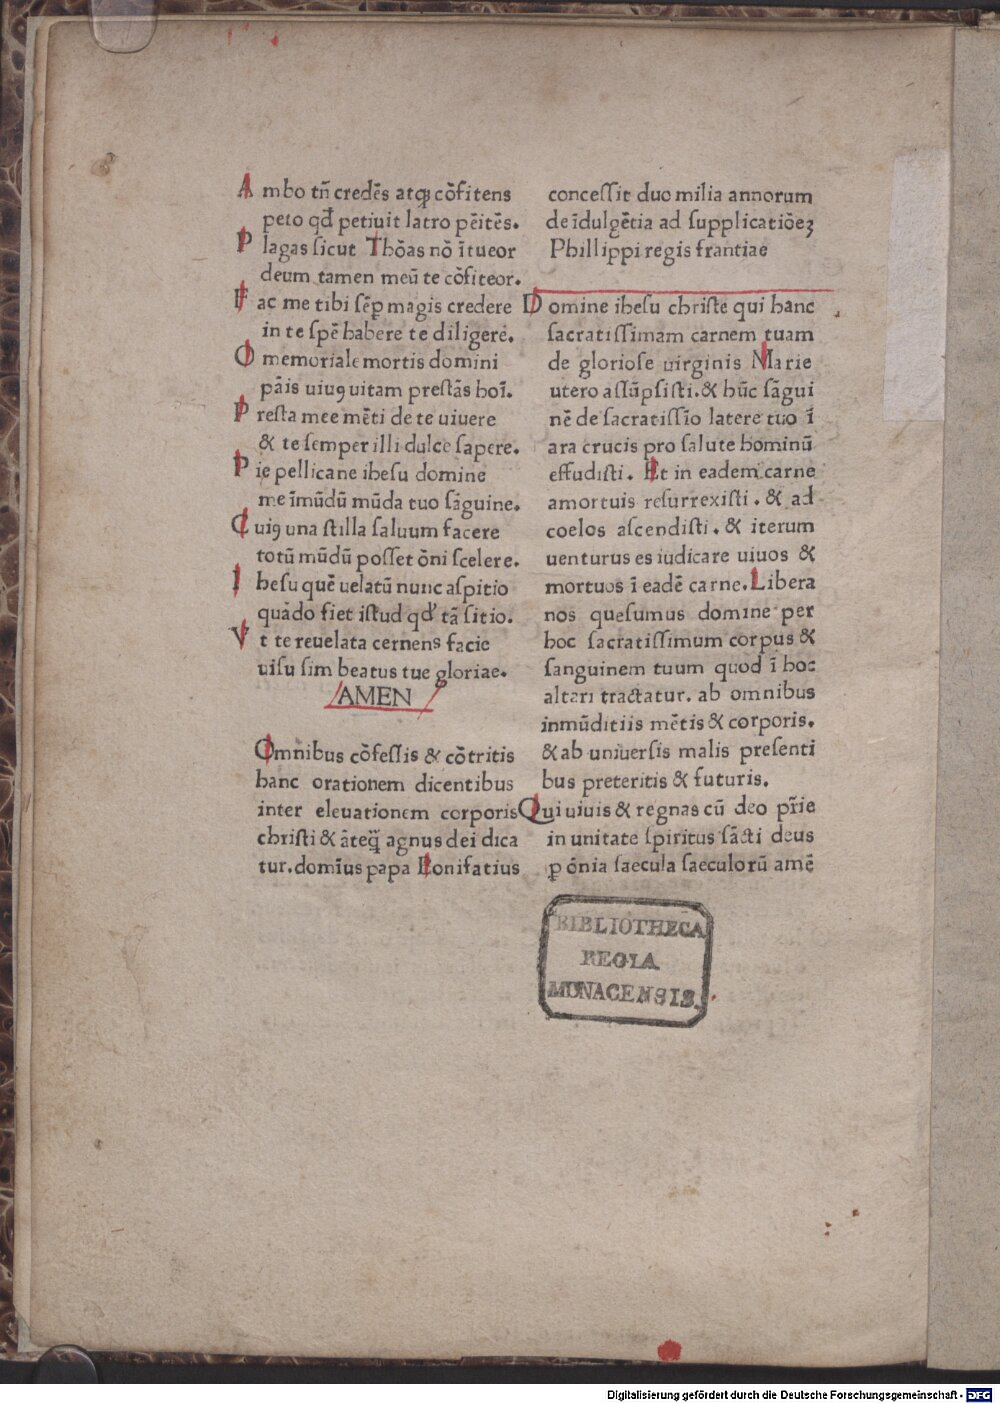 A mbo tñ credēs atqꝫ cōfitens
peto qď petiuit latro pēitēs.
P lagas sicut Thōas nō ītueor
deum tamen meū te cōfiteor.
F ac me tibi sēꝑ magis credere
in te spē habere te diligere.
O memoriale mortis domini
pāis uiuꝯ uitam prestās hoī.
P resta mee mēti de te uiuere
& te semper illi dulce sapere.
P ie pellicane ihesu domine
me īmūdū mūda tuo sāguine.
C uiꝯ una stilla saluum facere
totū mūdū posset ōni scelere.
I hesu quē uelatū nunc aspitio
quādo fiet istud qď tā sitio.
V t te reuelata cernens facie
uisu sim beatus tue gloriae.
AMEN
Omnibus cōfessis & cōtritis
hanc orationem dicentibus
inter eleuationem corporis
christi & āteqꝫ agnus dei dica
tur. domīus papa Bonifatius
concessit duo milia annorum
de īdulgētia ad supplicatiōeꝫ
Phillippi regis frantiae
D omine ihesu christe qui hanc
sacratissimam carnem tuam
de gloriose uirginis Marie
utero assūpsisti. & hūc sāgui
nē de sacratissīo latere tuo ī
ara crucis pro salute hominū
effudisti. Et in eadem carne
amortuis resurrexisti. & ad
coelos ascendisti. & iterum
uenturus es iudicare uiuos &
mortuos ī eadē carne. Libera
nos quesumus domine per
hoc sacratissimum corpus &
sanguinem tuum quod ī hoc
altari tractatur. ab omnibus
inmūditiis mētis & corporis.
& ab uniuersis malis presenti
bus preteritis & futuris.
Qui uiuis & regnas cū deo pr̄ie
in unitate spiritus sācti deus
ꝑ ōnia saecula saeculorū amē
BIBLIOTHECA
REGIA
MONACENSIS.
Digitalisierung gefördert durch die Deutsche Forschungsgemeinschaft - DFG